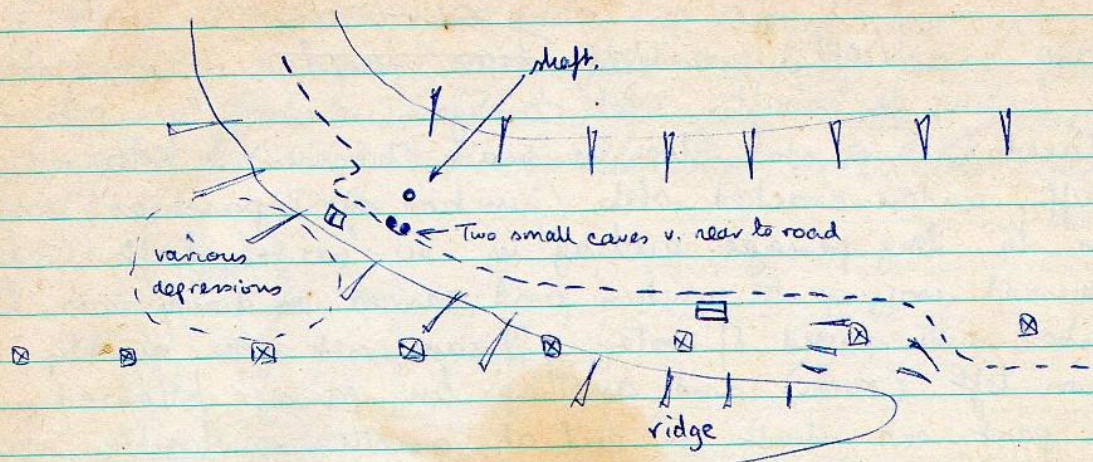 shaft.
Two small caves v. near to road
various
depressions
ridge